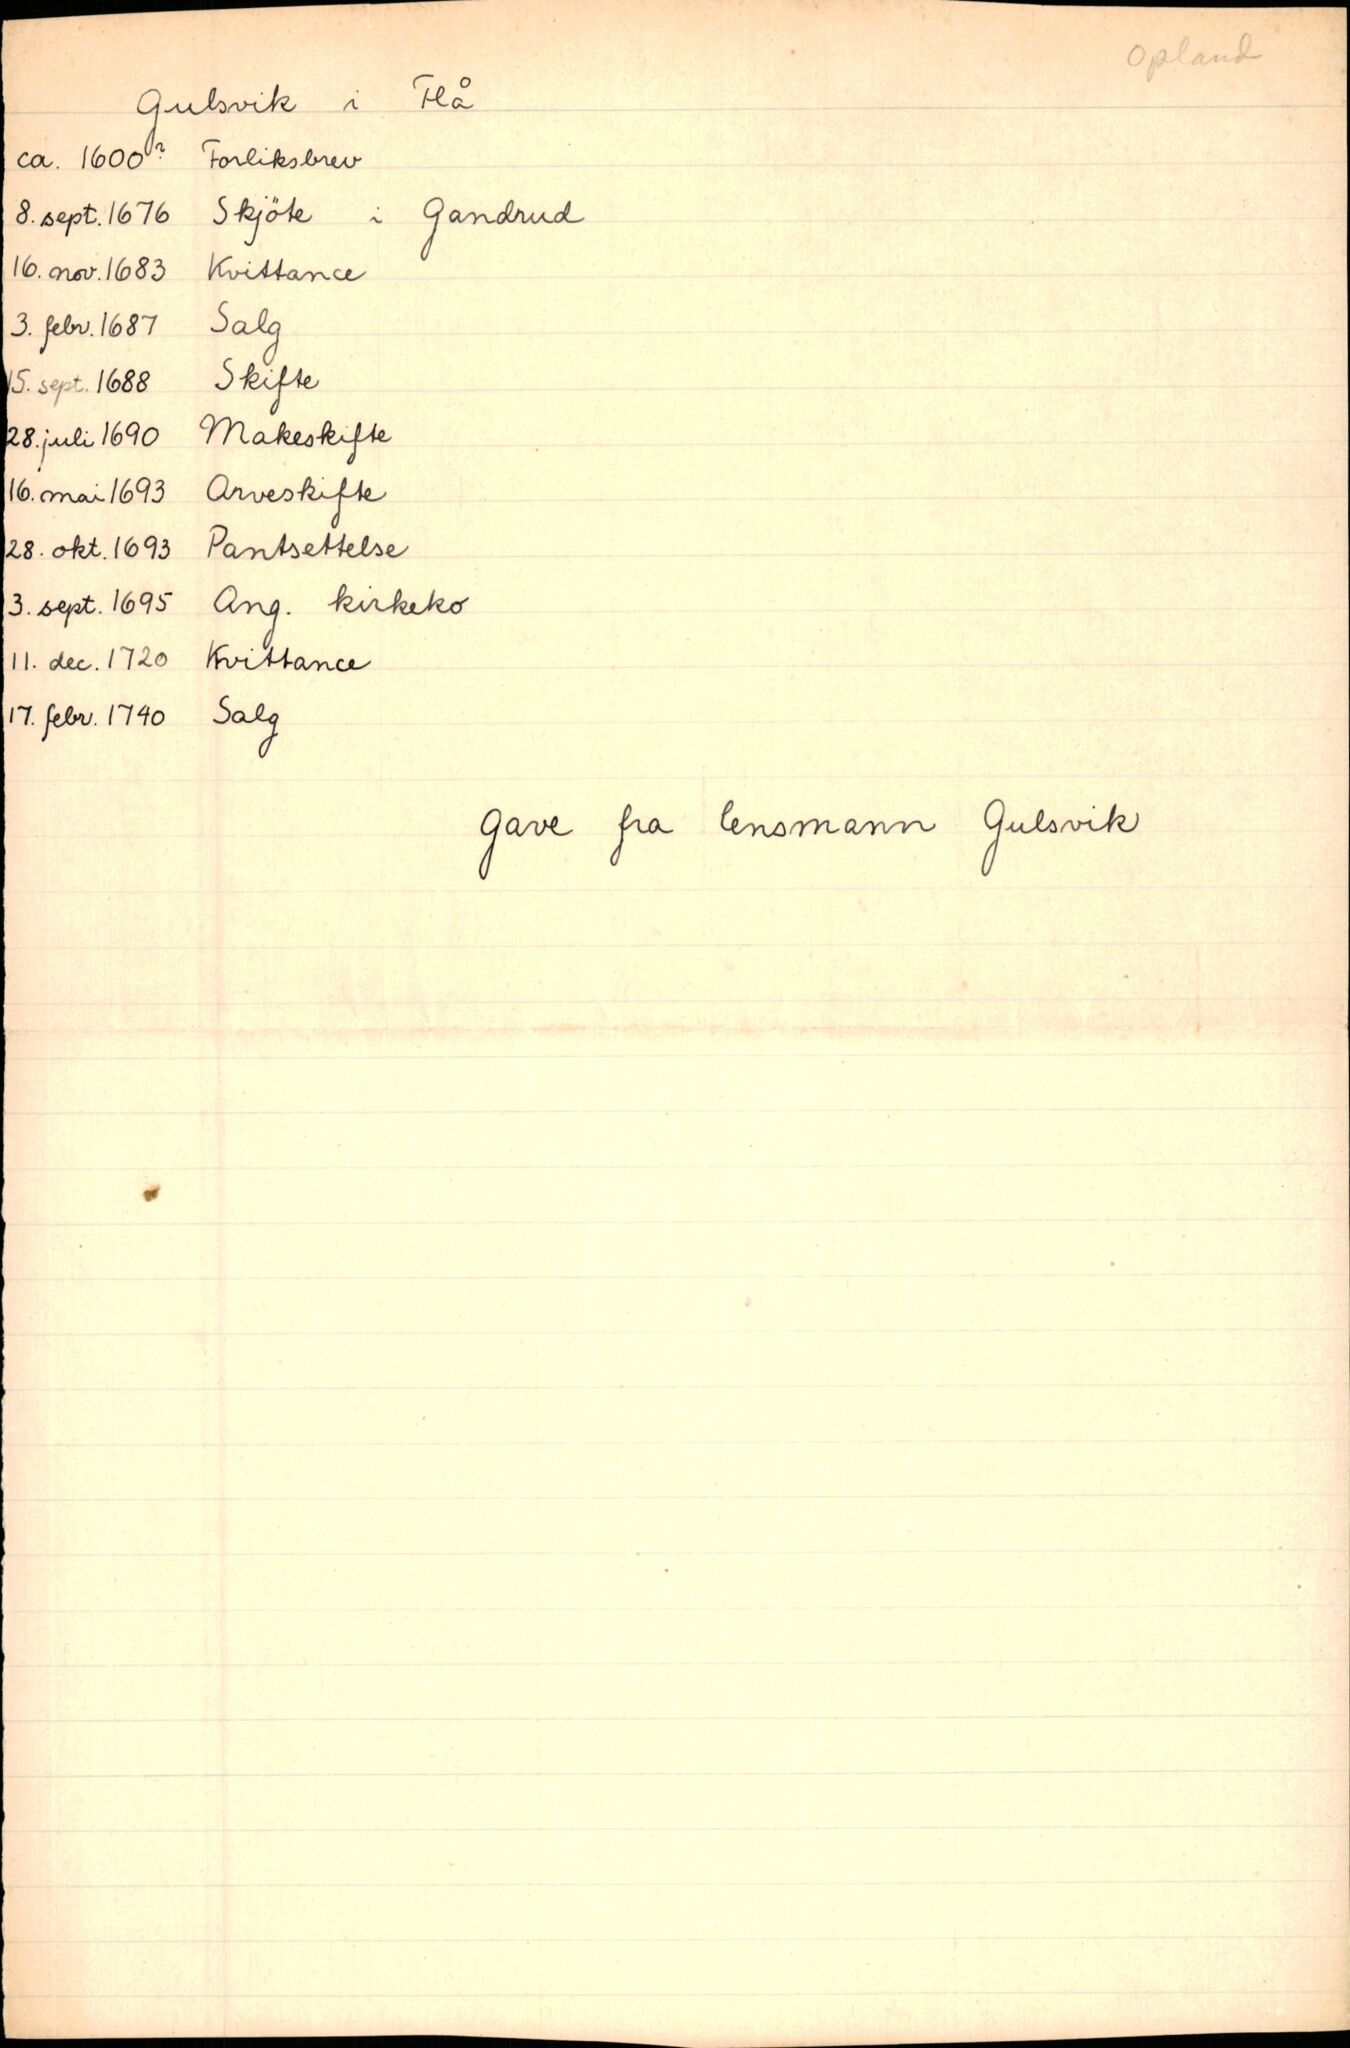 Opland
Gulsvik i Flå
ca. 1600? Forliksbrev
8. sept. 1676 Skjöte i Gandrud
16. nov. 1683 Kvittance
3. febr. 1687 Salg
15. sept. 1688 Skifte
28. juli 1690 Makeskifte
16. mai 1693 Arveskifte
28. okt. 1693 Pantsettelse
3. sept. 1695 Ang. kirkeko
11. dec. 1720 Kvittance
17. febr. 1740 Salg
Gave fra lensmann Gulsvik